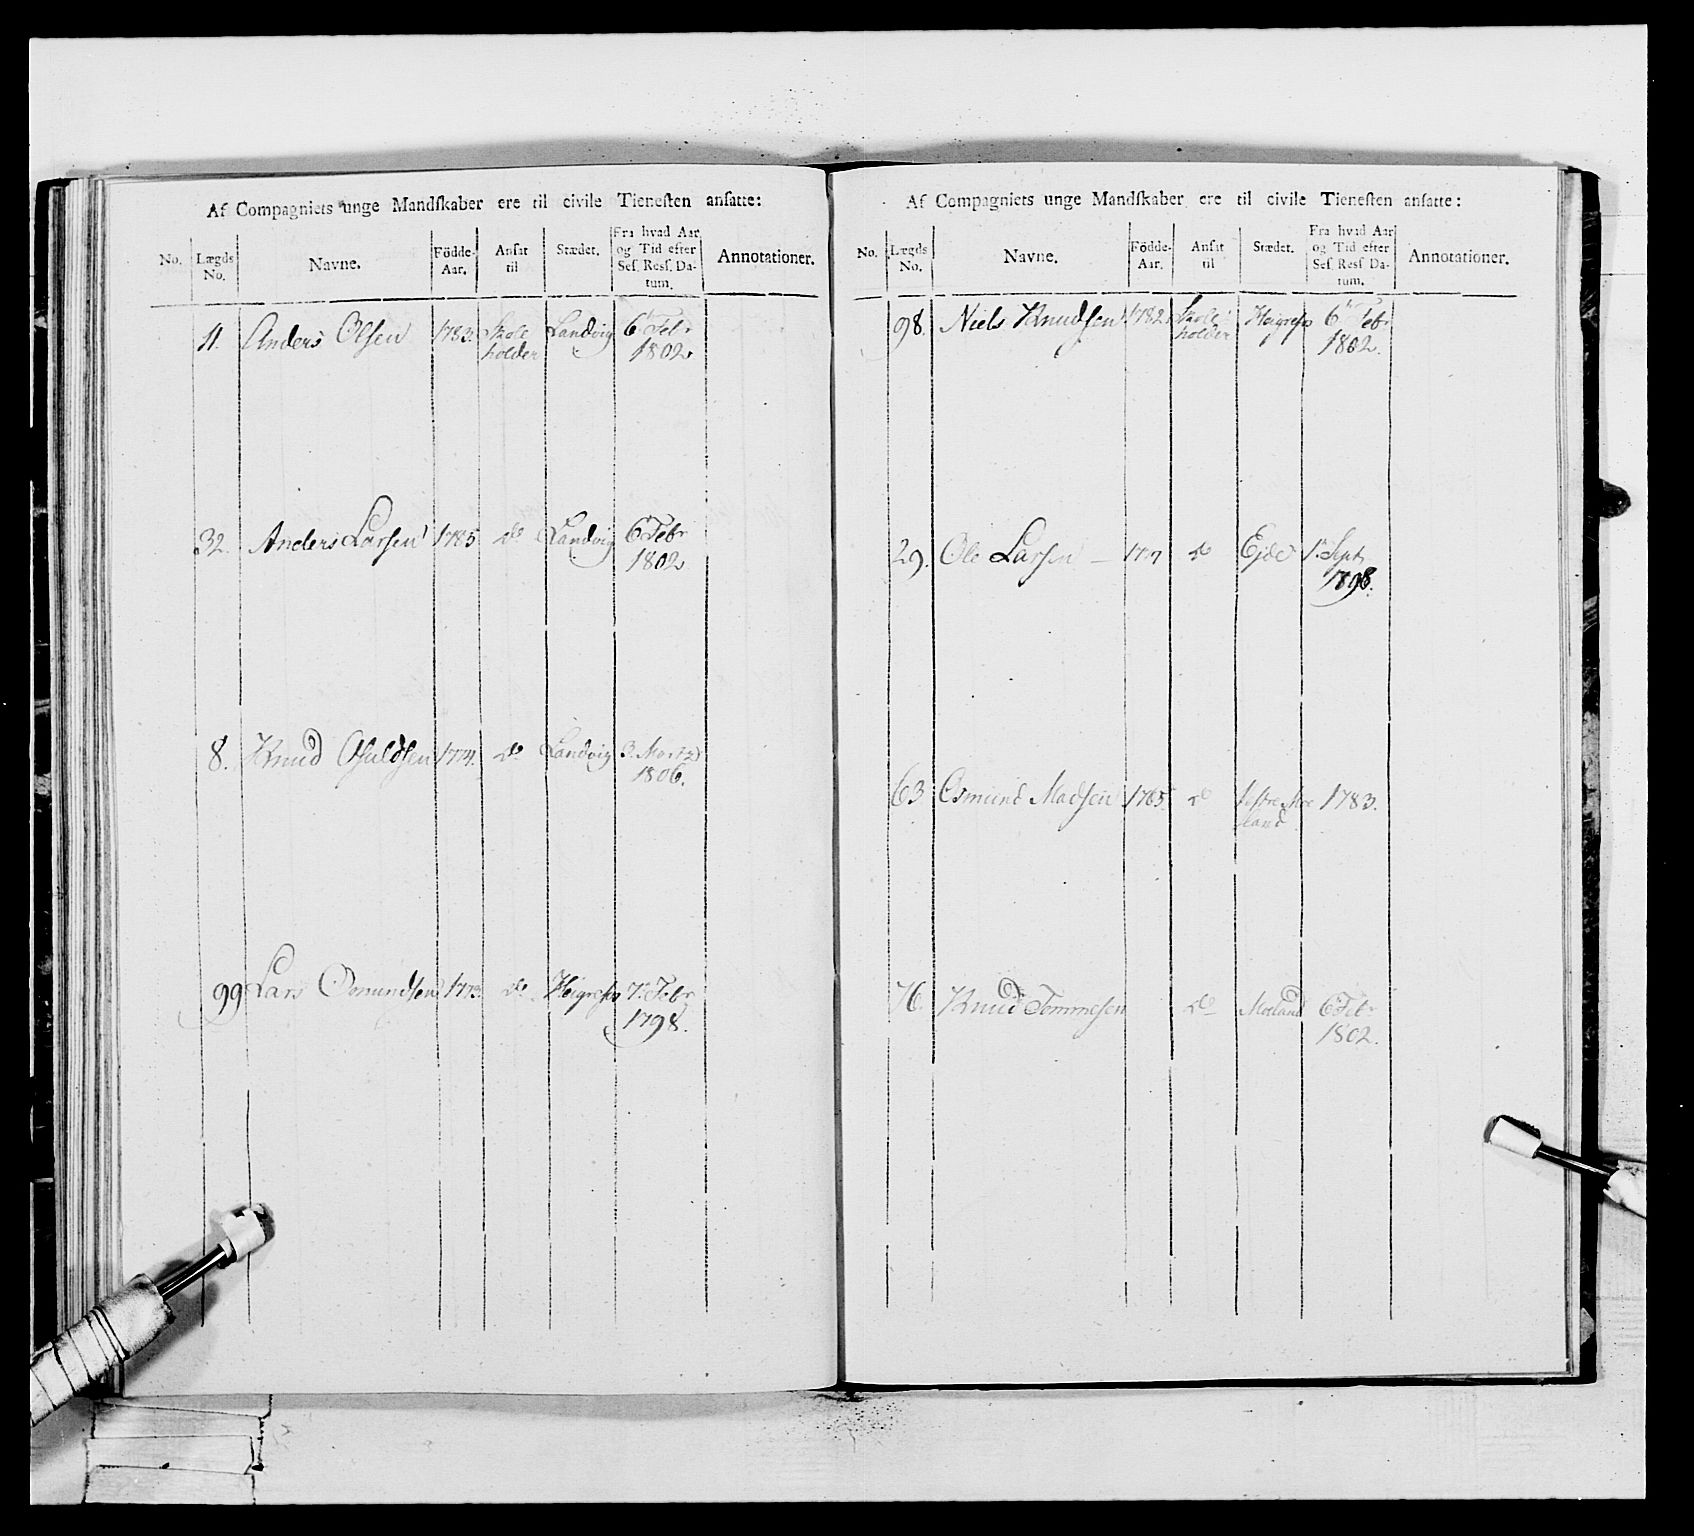 Af Compagniets unge Mandſkaber ere til civile Tieneſten anſatte:
No. Lægds No. Navne. Födde-Aar. Anſat til Stædet. Fra hvad Aar og Tid efter Seſ. Reſſ. Datum. Annotationer.
11. Anders Olsen 1783. Skole Landvig 6t Febr
holder 1802
32. Anders Larsen 1785 do Landvig 6 Febr
1802
8. Knud 1774. do Landvig 3. Martz
1806.
99 Lars Osmundsen 1773. do 7. Febr
1798.
Af Compagniets unge Mandſkaber ere til civile Tieneſten anſatte:
No. Lægds No. Navne. Födde-Aar. Anſat til Stædet. Fra hvad Aar og Tid efter Seſ. Reſſ. Datum. Annotationer.
98. Niels Knudsen 1782. Skole 6t Febr
holder 1802.
29. Ole Larsen – do Ejde 1. Sept
1798.
63 Osmund Madsen 1765 do 1783.
land
76. Knud Tommesen do Moland 6 Febr
1802.